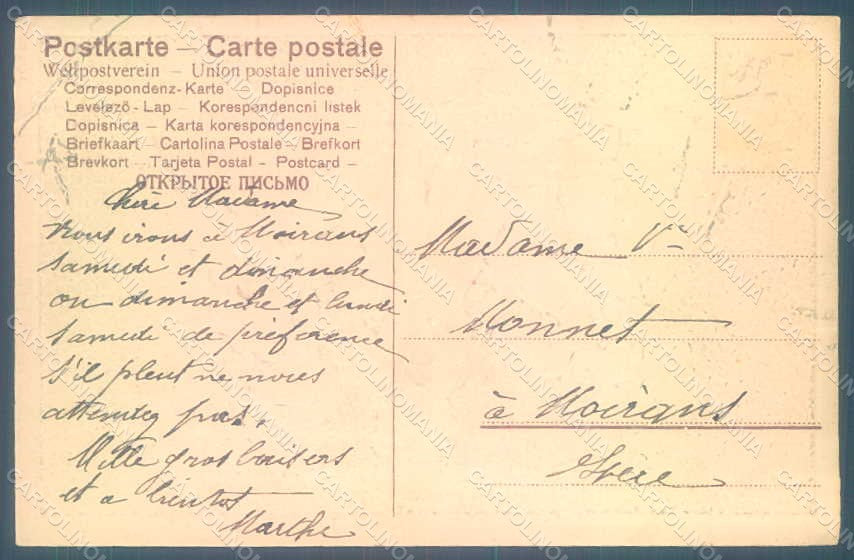 Postkarte — Carte postale
Weltpostverein — Union postale universelle
Correspondenz-Karte — Dopisnice
Levelező-Lap — Korespondencni listek
Dopisnica — Karta korespondencyjna —
Briefkaart — Cartolina Postale — Brefkort
Brevkort — Tarjeta Postal - Postcard —
ОТКРЫТОЕ ПИСЬМО
Chère Madame
Nous irons à Moirans
samedi et dimanche
ou dimanche et lundi
samedi de préférence
s'il pleut ne nous
attendez pas.
Mille gros baisers
et a bientot
Marthe
Madame Vve
Monnet
à Moirans
Isère
CARTOLINOMANIA